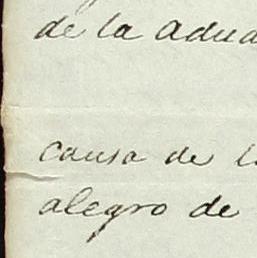 de la adua
causa de l
alegro de